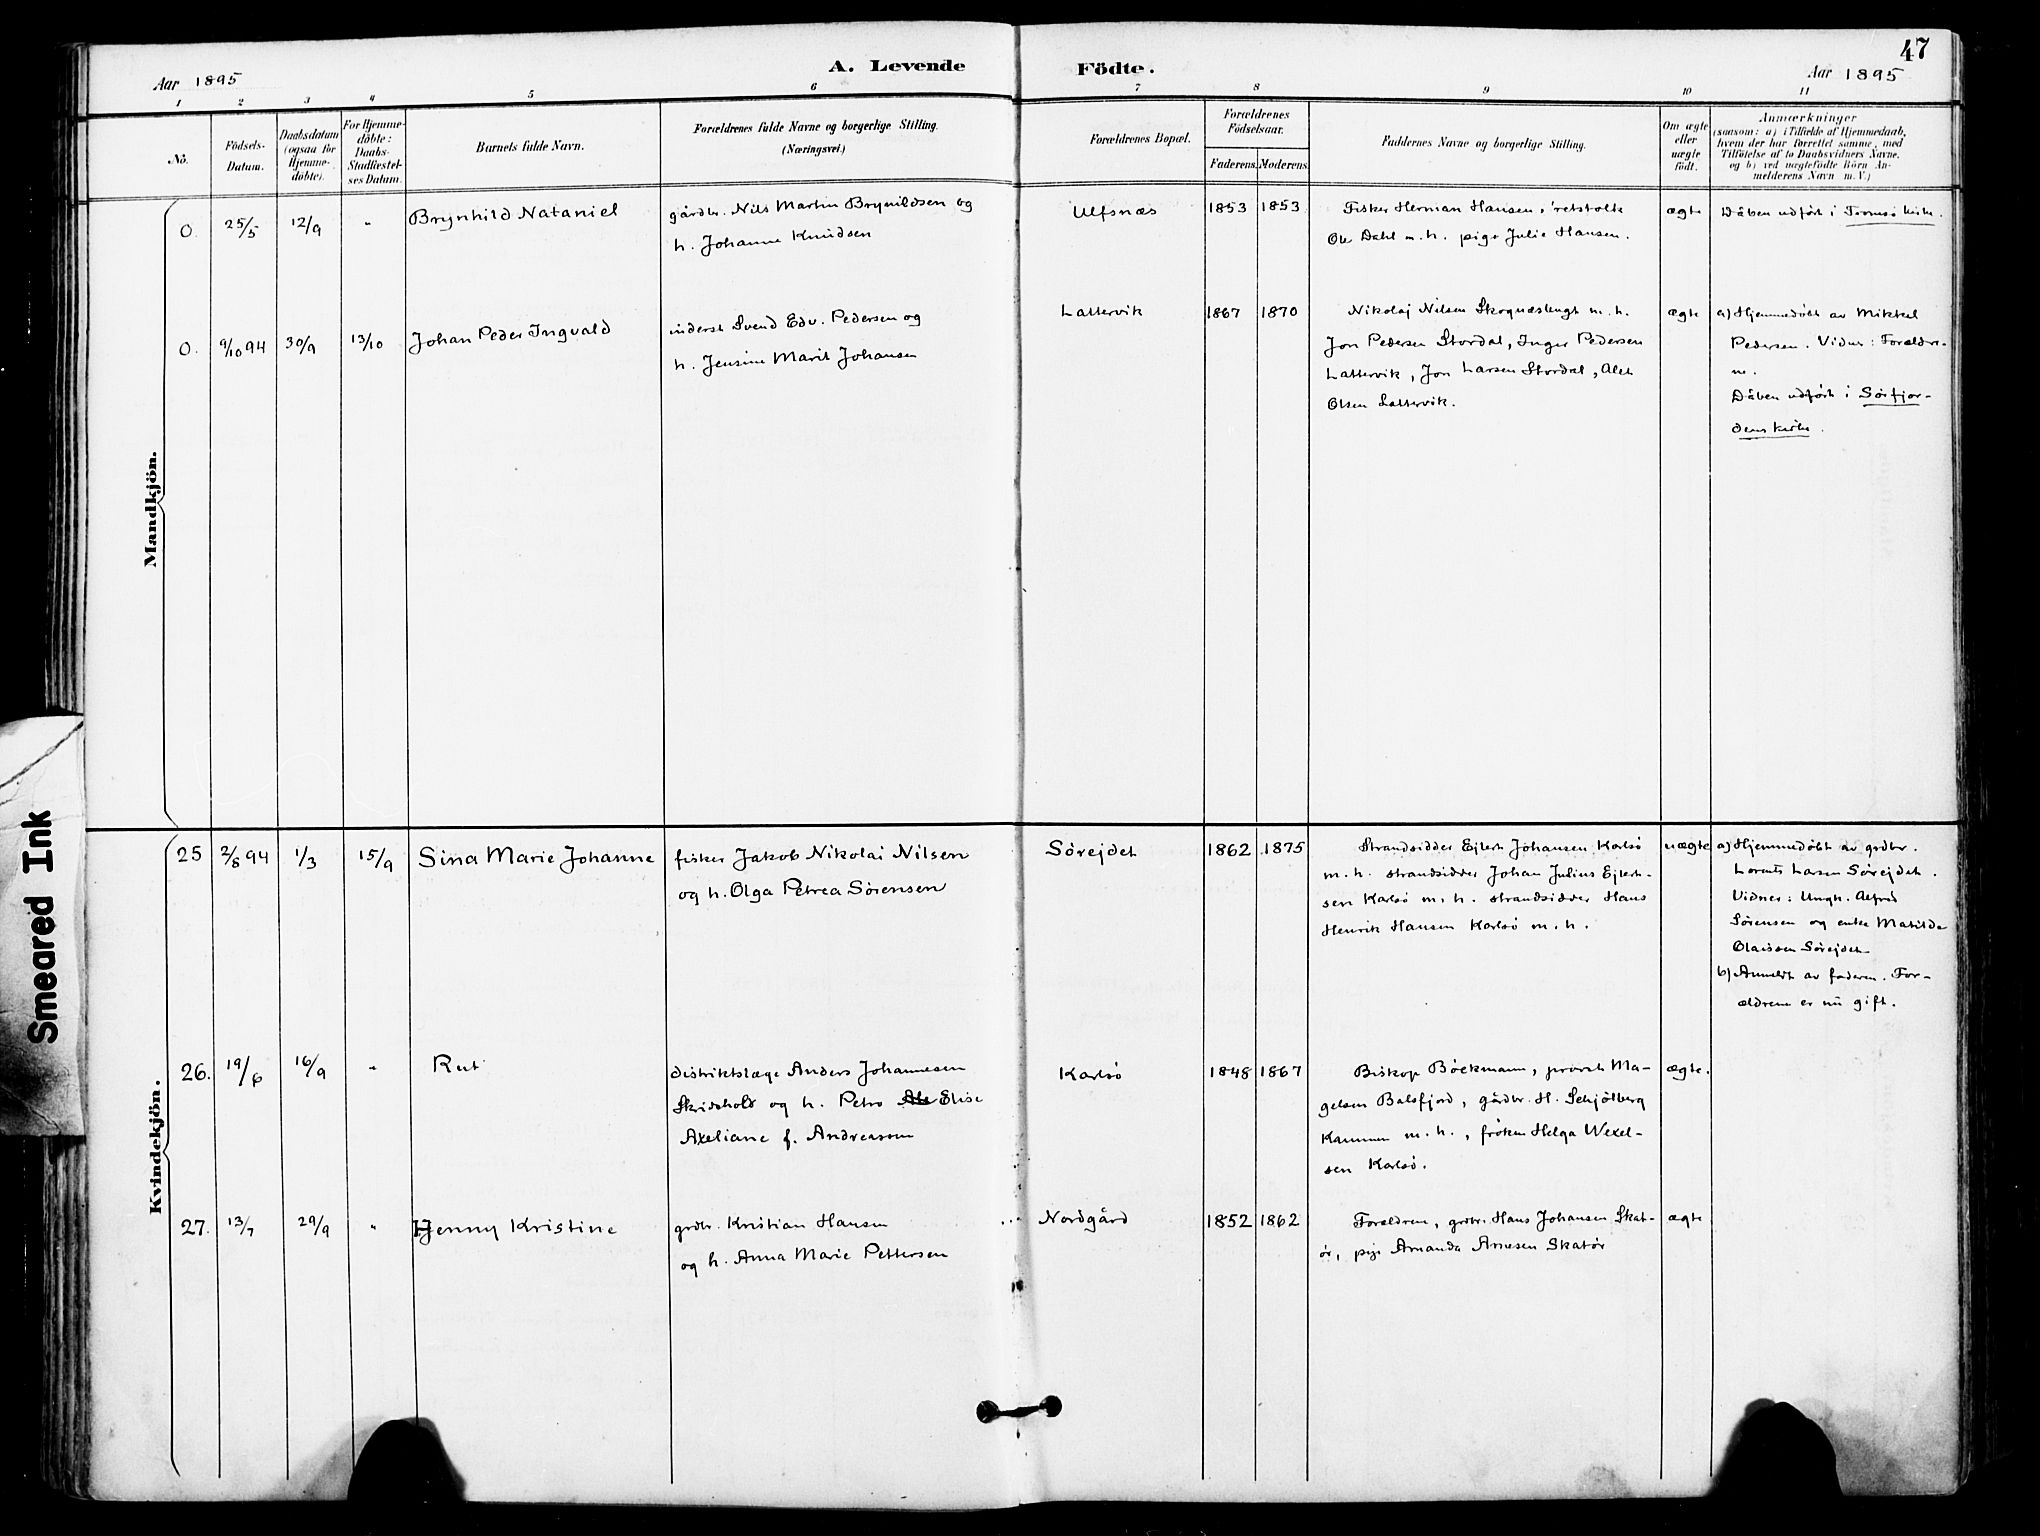 47
Aar 1895
A. Levende Födte.
Aar 1895
1 2 3 4 5 6 7 8 9 10 11
No.
Födsels-Datum.
Daabsdatum (ogsaa for Hjemmedöbte).
For Hjemmedöbte: Daabs-Stadfæstelses Datum.
Barnets fulde Navn.
Forældrenes fulde Navne og borgerlige Stilling.
(Næringsvei.)
Forældrenes Bopæl.
Forældrenes Födselsaar.
Faderens. Moderens.
Faddernes Navne og borgerlige Stilling.
Om ægte eller uægte födt.
Anmærkninger
(saasom: a) i Tilfælde af Hjemmedaab,
hvem der har forrettet samme, med
Tilföielse af to Daabsvidners Navne,
og b) ved uægtefödte Börn An-
melderens Navn m. V.)
Mandkjön.
0. 25/5 12/9 " Brynhild Nataniel
gårdbr. Nils Martin Brynildsen og
h. Johanne Knudsen
Ulfsnæs 1853 1853
Fisker Herman Hansen,
Ole Dahl m. h. pige Julie Hansen.
ægte
Dåben udført i Tromsö kirke.
0. 9/10 94 30/9 13/10 Johan Peder Ingvald
inderst Svend Edv. Pedersen og
h. Jensine Marit Johansen
Lattervik 1867 1870
Nikolaj Nilsen m. h.
Jon Pedersen Stordal, Inger Pedersen
Lattervik, Jon Larsen Stordal, Alet
Olsen Lattervik.
ægte
a) Hjemmedøbt av Mikkel
Pedersen. Vidner: Forældre-
ne.
Dåben udført i Sørfjor-
dens kirke.
Kvindekjön.
25 2/8 94 1/3 15/9 Sina Marie Johanne
fisker Jakob Nikolai Nilsen
og h. Olga Petrea Sörensen
Sörejdet 1862 1875
Strandsidder Ejlert Johansen Karlsö
m. h. strandsidder Johan Julius Ejlert-
sen Karlsö m. h. strandsidder Hans
Henrik Hansen Karlsö m. h.
uægte
a) Hjemmedøbt av grdbr.
Lorents Larsen Sörejdet.
Vidner: Ungk. Alfred
Sörensen og enke Matilde
Olaissen Sörejdet
b) Anmeldt av faderen. For-
ældrene er nu gift.
26. 19/6 16/9 " Rut
distriktslæge Anders Johannesen
Skridshold og h. Petra Elise
Axeliane f. Andreassen
Karlsö 1848 1867
Biskop Böckmann, provst Ma-
gelsen Balsfjord, gårdbr. H. Schjölberg
Kammen m. h., frøken Helga Wexel-
sen Karlsö.
ægte.
27. 13/7 29/9 " Henny Kristine
grdbr. Kristian Hansen
og h. Anna Marie Pettersen
Nordgård 1852 1862
Forældrene, grdbr. Hans Johansen Skat-
ør, pige Amanda Arnesen Skatør
ægte
Smeared Ink